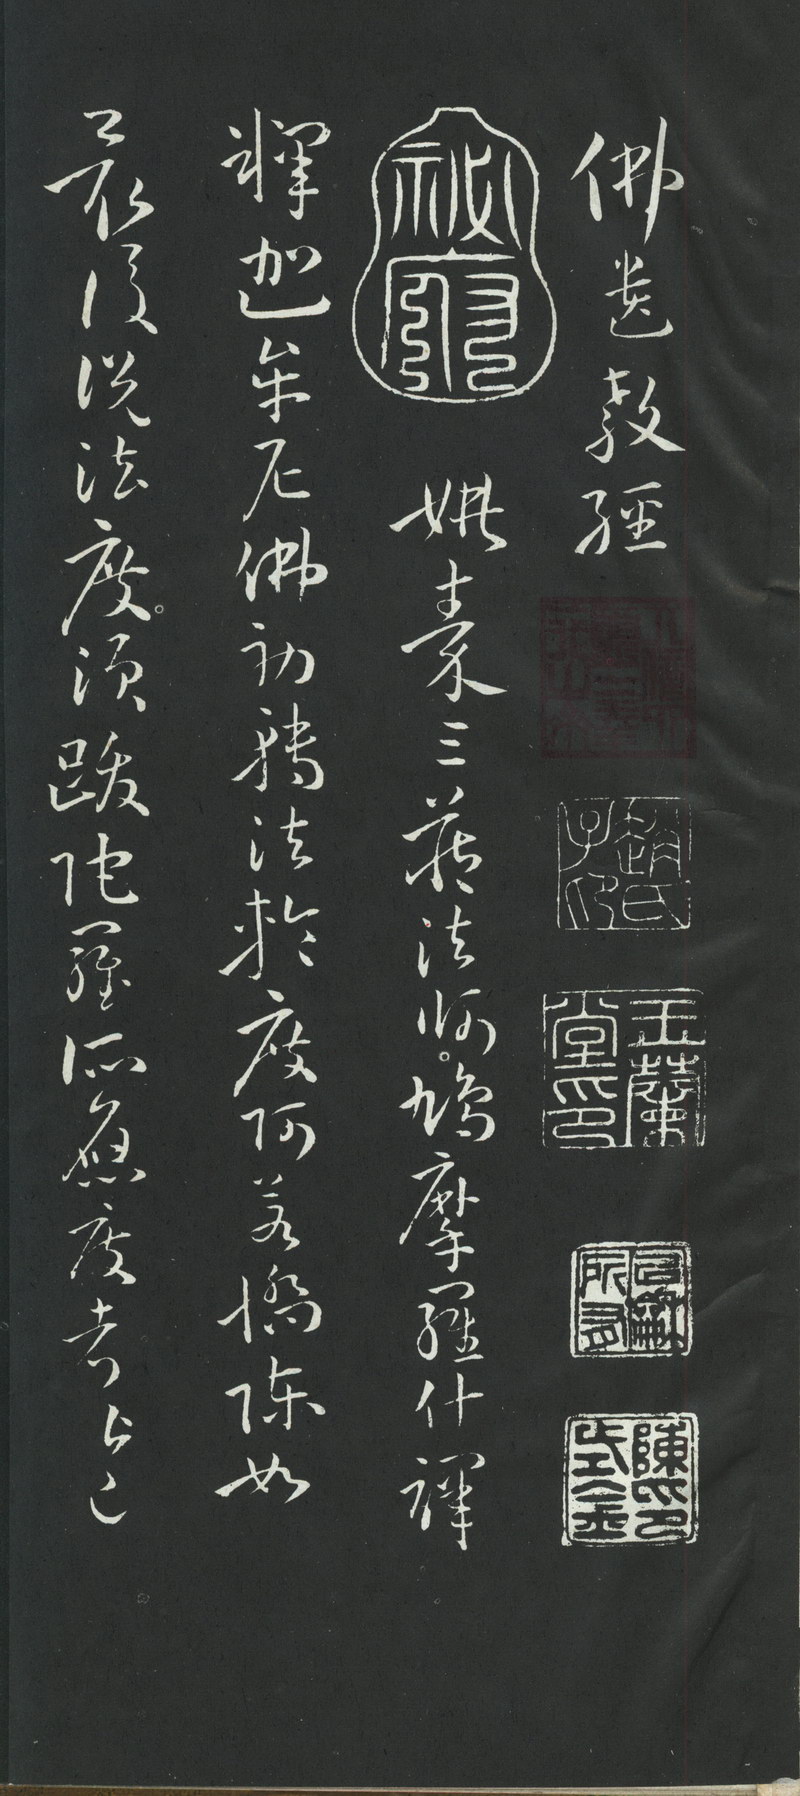 佛遺教經
趙氏子印
玉蘭堂印
陳氏
祕府
姚秦三藏法師鳩摩羅什譯
釋迦牟尼佛初轉法輪度阿若憍陳如
最後說法度須跋陀羅所應度者皆已